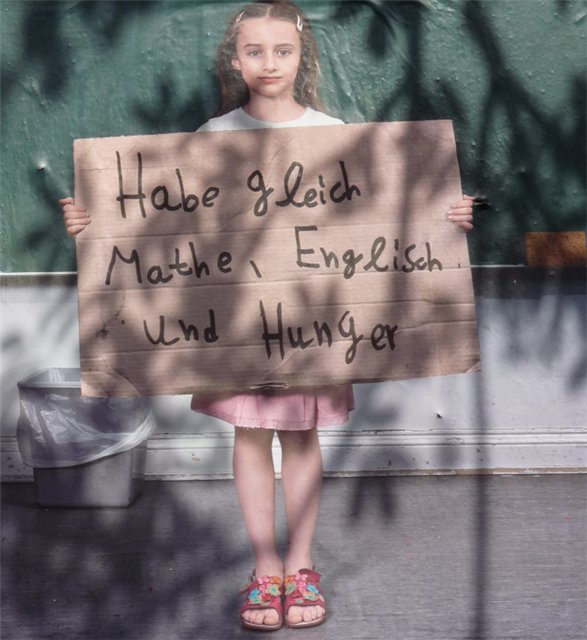 Habe gleich
Mathe, Englisch
und Hunger